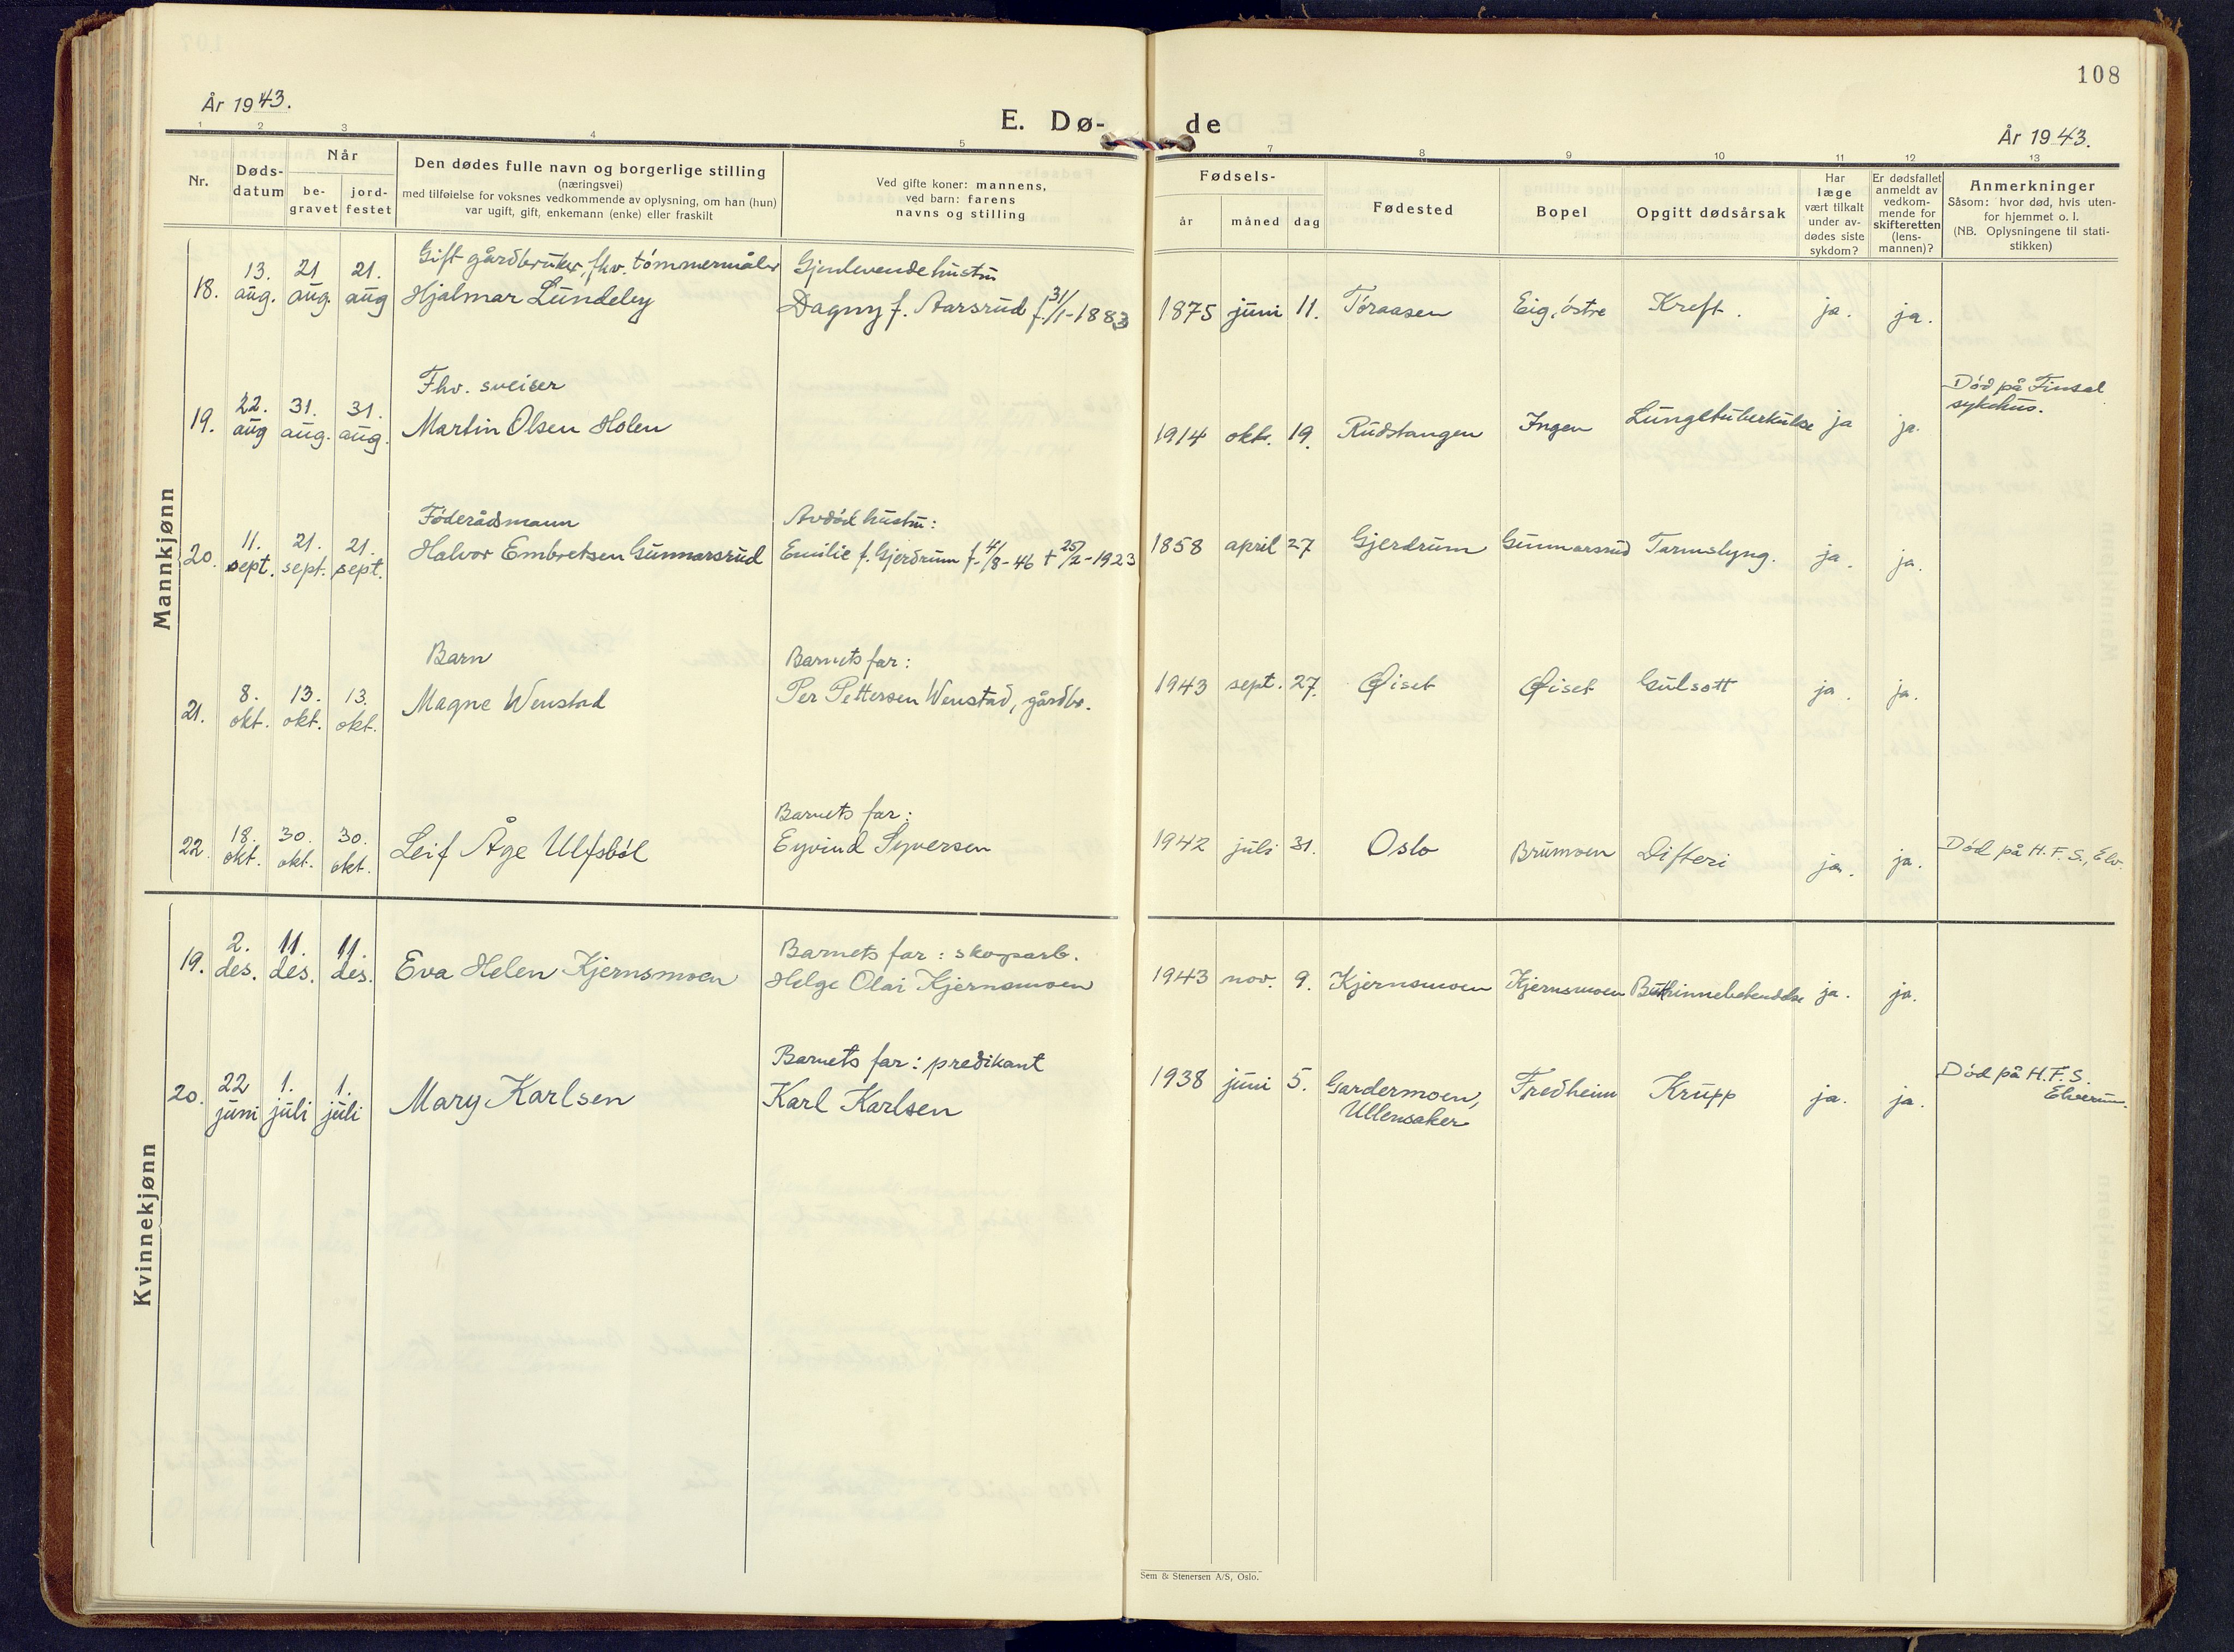 108
År 1943.
E. Dø-
de
År 1943.
1 2 3 4 5 7 8 9 10 11 12 13
Nr.
Døds-
datum
Når
be-
gravet
jord-
festet
Den dødes fulle navn og borgerlige stilling
(næringsvei)
med tilføielse for voksnes vedkommende av oplysning, om han (hun)
var ugift, gift, enkemann (enke) eller fraskilt
Ved gifte koner: mannens,
ved barn: farens
navns og stilling
Fødsels-
år måned dag
Fødested
Bopel
Opgitt dødsårsak
Har
læge
vært tilkalt
under av-
dødes siste
sykdom?
Er dødsfallet
anmeldt av
vedkom-
mende for
skifteretten
(lens-
mannen)?
Anmerkninger
Såsom: hvor død, hvis uten-
for hjemmet o. l.
(NB. Oplysningene til stati-
stikken)
Mannkjønn
Gift gårdbruker, fhv. tømmermåler Gjenlevende hustru
18. 13. aug. 21 aug. 21. aug Hjalmar Lundeby Dagny f. Aarsrud f. 31/1-1883 1875 juni 11. Toraasen Eig, østre Kreft. ja. ja.
Fhv. sveiser
19. 22. aug 31. aug. 31. aug. Martin Olsen Holen 1914 okt. 19. Rudstangen Ingen Lungetuberkulse ja ja. Död på Finsal
sykehus.
Föderådsmann Avdöd hustru:
20. 11. sept. 21. sept. 21. sept. Halvor Embretsen Gunnarsrud Emilie f. Gjerdrum f. 4/8-46 + 25/2-1923 1858 april 27 Gjerdrum Gunnarsrud Tarmslyng. ja. ja.
Barn Barnets far:
21. 8. okt. 13. okt. 13. okt. Magne Wenstad Per Pettersen Wenstad, gårdbr. 1943 sept. 27. Øiset Øiset Gulsott ja. ja.
Barnets far:
22. 18. okt. 30. okt. 30. okt. Leif Åge Ulfsböl Eyvind Syversen 1942 juli 31. Oslo Brumoen Difteri ja. ja. Död på H.F.S., Elv.
Kvinnekjønn
Barnets far: skogsarb.
19. 2. des. 11. des. 11. des. Eva Helen Kjernsmoen Helge Olai Kjernsmoen 1943 nov. 9. Kjernsmoen Kjernsmoen ja. ja.
Barnets far: predikant
20. 22 juni 1. juli 1. juli Mary Karlsen Karl Karlsen 1938 juni 5. Gardermoen,
Ullensaker Fredheim Krupp ja. ja. Död på H.F.S.
Elverum.
Sem & Stenersen A/S, Oslo.